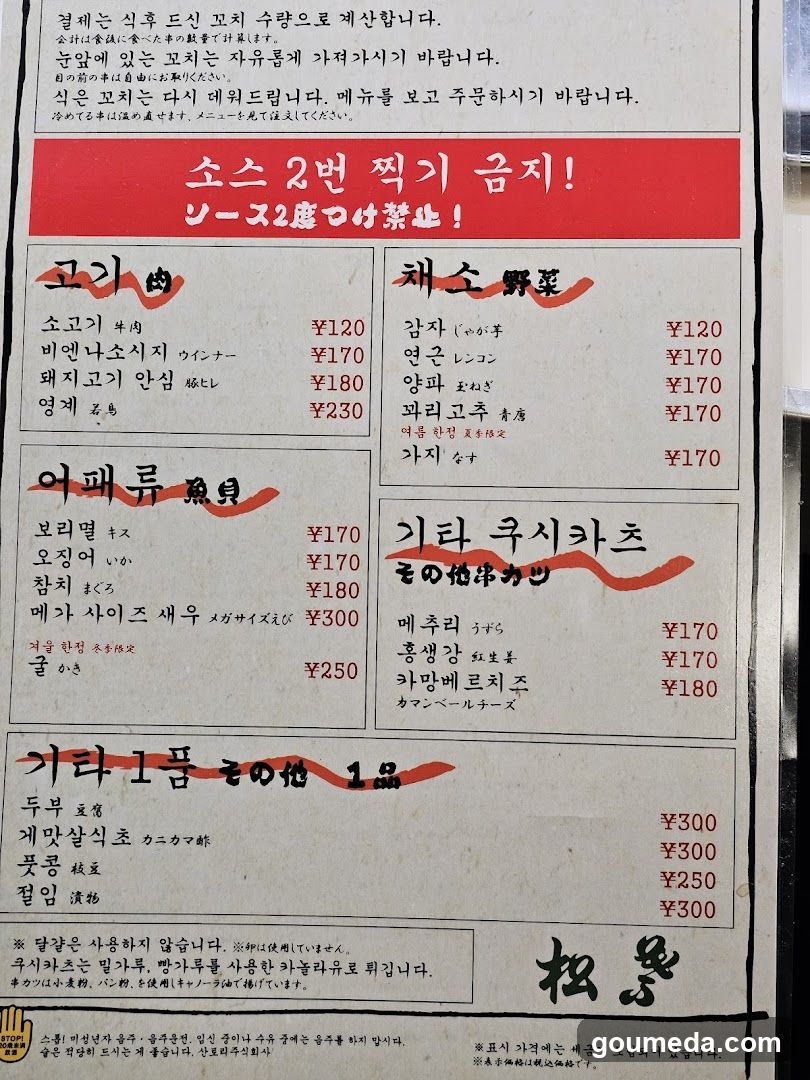 결제는 식후 드신 꼬치 수량으로 계산합니다.
会計は食後に食べた串の数量で計算します。
눈앞에 있는 꼬치는 자유롭게 가져가시기 바랍니다.
目の前の串は自由にお取りください。
식은 꼬치는 다시 데워드립니다. 메뉴를 보고 주문하시기 바랍니다.
冷めてる串は温め直せます、メニューを見て注文してください。
소스 2번 찍기 금지!
ソース2度つけ禁止！
고기 肉
소고기 牛肉 ¥120
비엔나소시지 ウインナー ¥170
돼지고기 안심 豚ヒレ ¥180
영계 若鳥 ¥230
채소 野菜
감자 じゃが芋 ¥120
연근 レンコン ¥170
양파 玉ねぎ ¥170
꽈리고추 青唐 ¥170
여름 한정 夏季限定
가지 なす ¥170
어패류 魚貝
보리멸 キス ¥170
오징어 いか ¥170
참치 まぐろ ¥180
메가 사이즈 새우 メガサイズえび ¥300
겨울 한정 冬季限定
굴 かき ¥250
기타 쿠시카츠
その他串カツ
메추리 うずら ¥170
홍생강 紅生姜 ¥170
카망베르치즈 ¥180
カマンベールチーズ
기타 1품 その他 1品
두부 豆腐 ¥300
게맛살식초 カニカマ酢 ¥300
풋콩 枝豆 ¥250
절임 漬物 ¥300
※ 달걀은 사용하지 않습니다. ※卵は使用していません。
쿠시카츠는 밀가루, 빵가루를 사용한 카놀라유로 튀깁니다.
串カツは小麦粉、パン粉、を使用しキャノーラ油で揚げています。
松葉
STOP!
20歳未満
飲酒
스톱! 미성년자 음주・음주운전. 임신 중이나 수유 중에는 음주를 하지 맙시다.
술은 적당히 드시는 게 좋습니다. 산토리주식회사
※표시 가격에는 세금
※表示価格は税込価格です。
goumeda.com